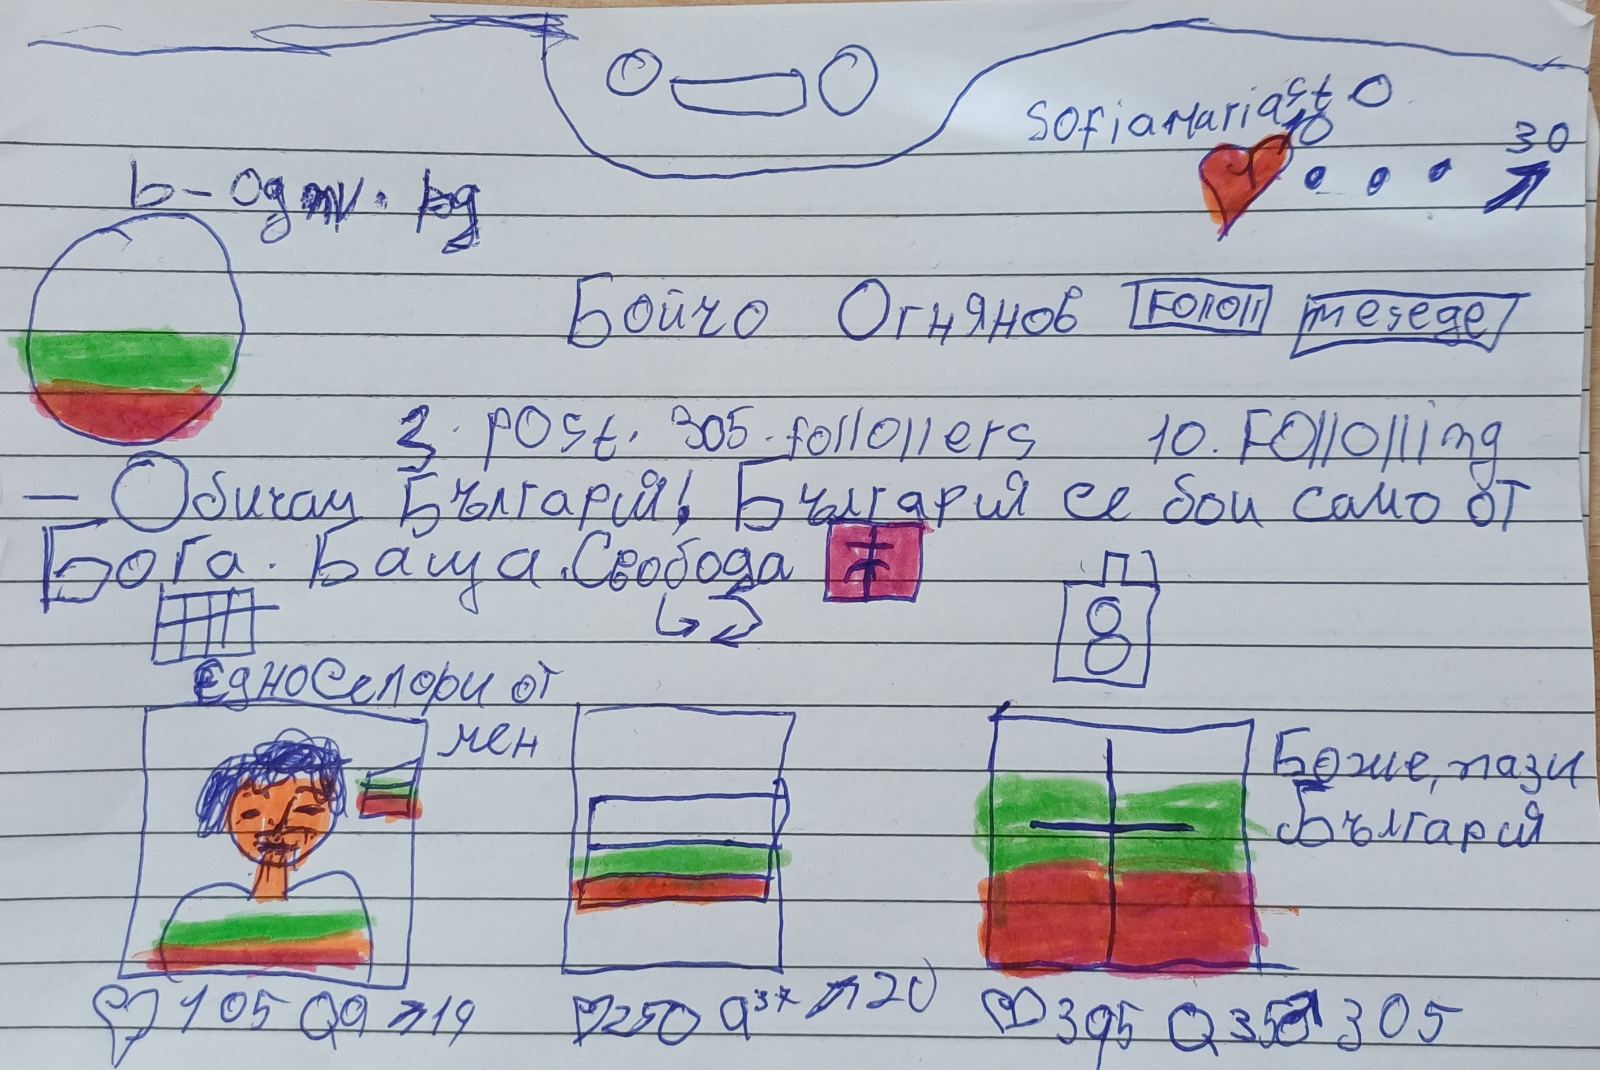 SofiaMariast
10
30
Бойчо Огнянов Folloll mesege
3. post. 305. follollers 10. Follolling
– Обичам България! България се бои само от
Бога. Баща. Свобода
8
Едноселори от
мен
Боже, пази
България
105 9 19
250 37 20
395 350 305